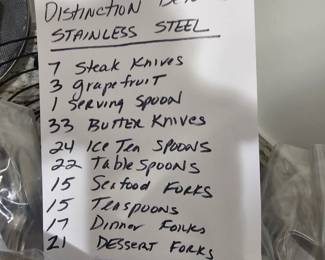 DISTINCTION
STAINLESS STEEL
7 Steak Knives
3 grapefruit
1 Serving Spoon
33 Butter Knives
24 Ice Tea Spoons
22 Table Spoons
15 Seafood Forks
15 Teaspoons
17 Dinner Forks
21 Dessert Forks